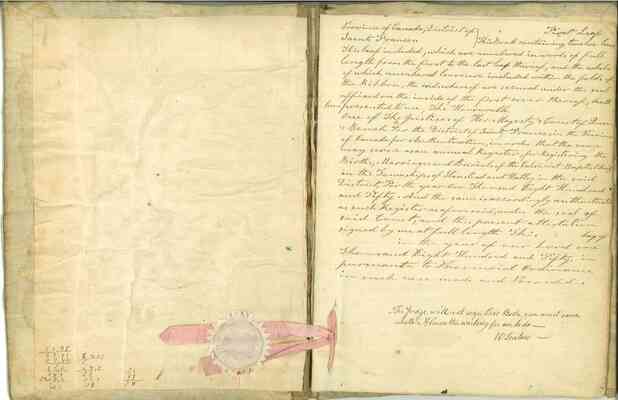 Province of Canada, District of
Saint Francis
First Leaf
This Book containing twelve leaves
This leaf included, which are numbered in words at full
length from the first to the last leaf thereof, and the whole
of which numbered leaves are included within the folds of
the Ribbon, the ends whereof are secured under the seal
affixed on the inside of the first cover thereof, hath
been presented to me The Honorable
One of The Justices of Her Majesty's Court of Queen's
Bench for the District of Saint Francis, in the Province
of Canada for Authentication, in order that the same
may serve as an annual Register, for Registering the
Births, Marriages and Burials of the Calvinist Baptist Church
in the Townships of Stanstead and Hatley, in the said
District, For the year One Thousand Eight Hundred
and Fifty. And the same is accordingly authenticated
as such Register as aforesaid, under the seal of
said Court, and this present attestation
signed by me at full length This day of
in the year of our Lord one
Thousand Eight Hundred and Fifty, in
pursuance to Provincial Ordinance
in such case made and Provided.
The Judge will not sign this Book, you must